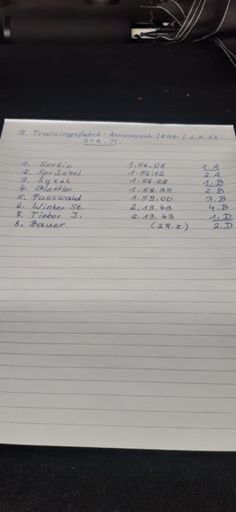 9. Trainingsfahrt -
STR. M.
1. Sartic 1.56.08 1. A
2. Sprüssel 1.56.12 2. A
3. Sytel 1.58.28 1. B
4. Glettler 1.58.35 2. B
5. Passwald 1.59.00 3. B
6. Winkler St. 2.13.43 4. B
7. Tieber J. 2.13.43 1. D
8. Bauer (2 R. z.) 2. D